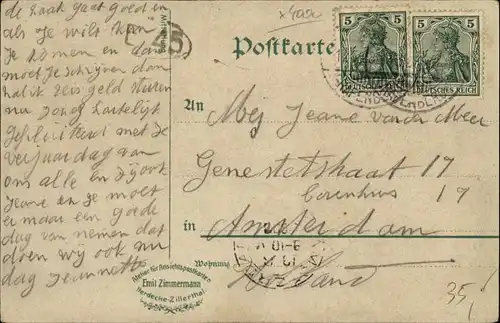 de zaak gaat goed en
als je wilt kan
je komen en dan
moet je schrijven dan
zal ik reis geld sturen
nu Jong hartelijk
gefeliciteerd met je
verjaardag van
om alle en zijook
Jeane en je moet
er maar een goede
dag van nemen dat
doen wij ook nu
dag Jeannette
Postkarte
5 5
5 5
DEUTSCHES REICH
DEUTSCHES REICH
An Mej Jeane van der Meer
Genestetstraat 17
17
in Amsterdam
Wohnung
Holland
Atelier für Ansichtspostkarten
Emil Zimmermann
Herdecke-Zillertal
35,